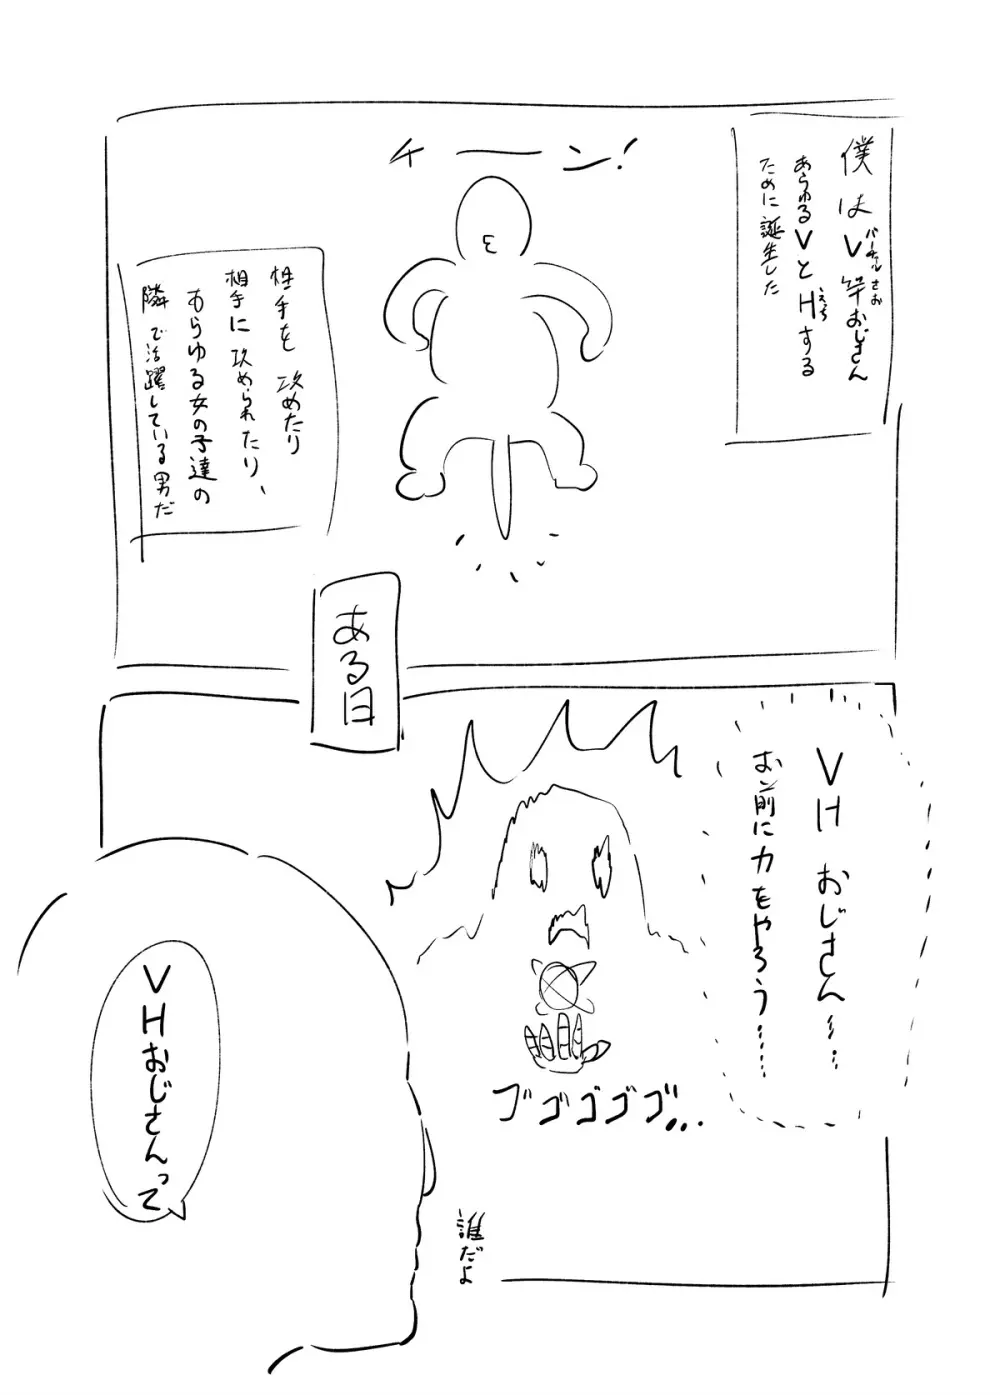 僕はV竿おじさん
バーチャルさお
あらゆるVとHする
えっち
ために誕生した
チーン!
性手を攻めたり
相手に攻められたり、
あらゆる女の子達の
隣で活躍している男だ
ある日
VHおじさん……
お前に力をやろう……
ゴゴゴゴゴ…
VHおじさんって
誰だよ